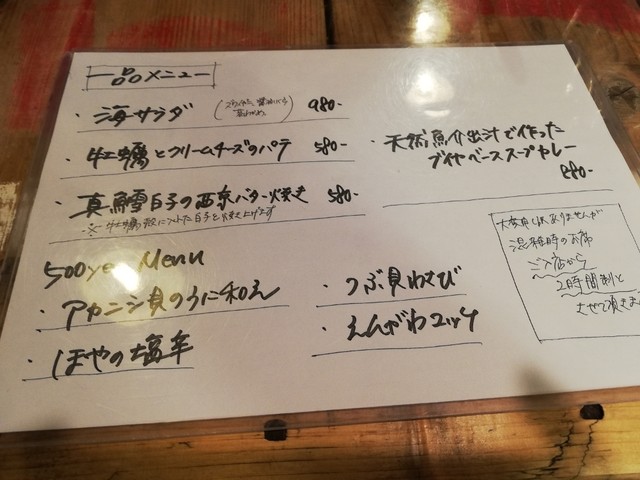 一品メニュー
・海サラダ 980-
・牡蠣とクリームチーズのパテ 580-
・真鱈白子の西京バター焼き 580-
※牡蠣殻に入れた白子を焼き上げます
・天然魚介出汁で作った
ブイヤベーススープカレー
880-
500yen Menu
・アカニシ貝のうに和え
・ほやの塩辛
・つぶ貝わさび
・えんがわユッケ
大変申し訳ありませんが
混雑時のお席
ご入店から
2時間制と
させて頂きま